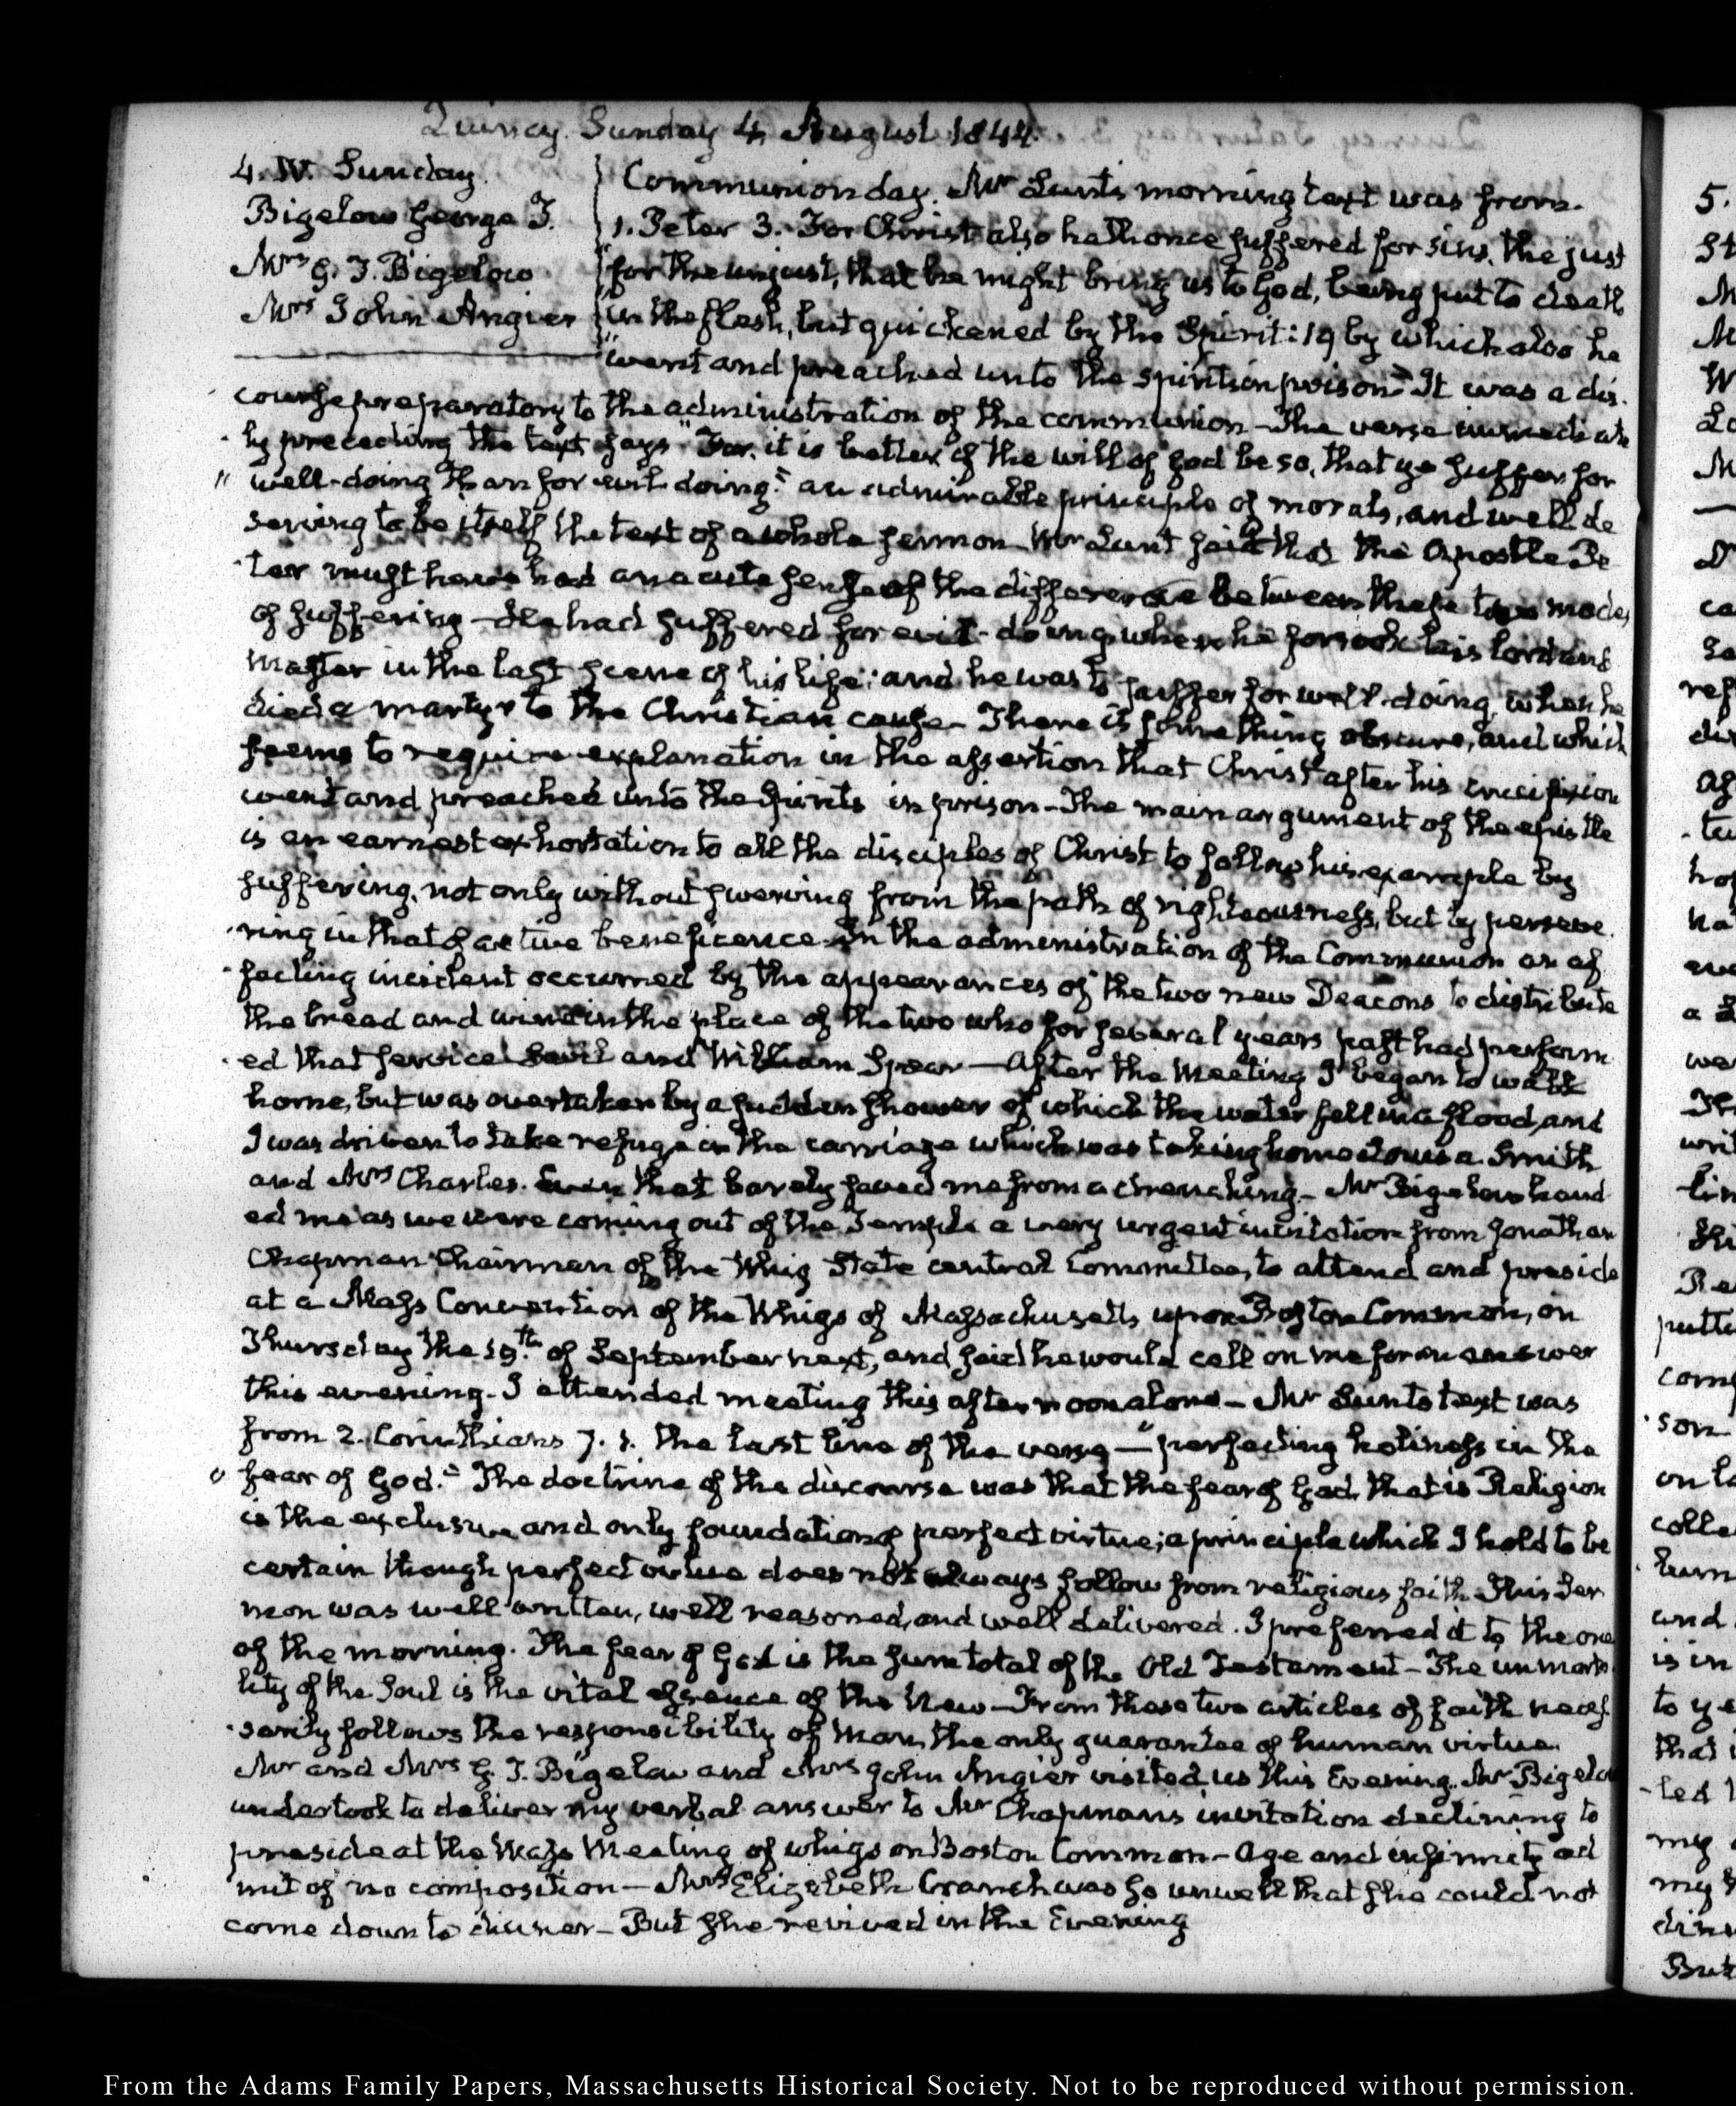 Quincy. Sunday 4. August 1844.
4. IV. Sunday.
Bigelow George T.
Mrs G. T. Bigelow
Mrs John Angier
Communion day. Mr Lunt's morning text was from.
1. Peter 3. For Christ also hath once suffered for sins, the just
"for the unjust, that he might bring us to God, being put to death
"in the flesh, but quickened by the Spirit: 19 by which also he
"went and preached unto the spirits in prison" It was a dis-
course preparatory to the administration of the communion - The verse immediate
ly preceding the text says "For, it is better if the will of God be so, that ye suffer for
" well-doing than for evil doing." an admirable principle of morals, and well de
serving to be itself the text of a whole sermon - Mr Lunt said that the Apostle Pe
ter must have had an acute sense of the difference between these two modes
of suffering - He had suffered for evil-doing when he forsook his lord and
master in the last scene of his life; and he was to suffer for well-doing, when he
died a martyr to the Christian cause - There is something obscure, and which
seems to require explanation in the assertion that Christ after his crucifixion
went and preached unto the Spirits in prison - The main argument of the epistle
is an earnest exhortation to all the disciples of Christ to follow his example by
suffering, not only without swerving from the path of righteousness, but by perseve-
ring in that of active beneficence - In the administration of the Communion an af
fecting incident occurred by the appearances of the two new Deacons to distribute
the bread and wine in the place of the two who for several years past had perform
ed that service Savil and William Spear - After the Meeting I began to walk
home, but was overtaken by a sudden shower of which the water fell in a flood, and
I was driven to take refuge in the carriage which was taking home Louisa Smith
and Mrs Charles. Even that barely saved me from a drenching - Mr Bigelow hand
ed me as we were coming out of the Temple a very urgent invitation from Jonathan
Chapman Chairman of the Whig State central Committee, to attend and preside
at a Mass Convention of the Whigs of Massachusetts, upon Boston Common, on
Thursday the 19th of September next, and said he would call on me for an answer
this evening. I attended meeting this afternoon alone - Mr Lunts text was
from 2. Corinthians 7. 1. the last line of the verse - "perfecting holiness in the
" fear of God." The doctrine of the discourse was that the fear of God, that is Religion
is the exclusive and only foundation of perfect virtue; a principle which I hold to be
certain though perfect virtue does not always follow from religious faith. This Ser
mon was well written, well reasoned, and well delivered. I preferred it to the one
of the morning. The fear of God is the sum total of the Old Testament - The immorta
lity of the Soul is the vital essence of the New - From these two articles of faith neces
sarily follows the responsibility of Man, the only guarantee of human virtue.
Mr and Mrs G. T. Bigelow and Mrs John Angier visited us this Evening. Mr Bigelow
undertook to deliver my verbal answer to Mr Chapmans invitation declining to
preside at the Mass Meeting of whigs on Boston Common - Age and infirmity ad
mit of no composition - Mrs Elizabeth Cranch was so unwell that she could not
come down to dinner - But she revived in the Evening
From the Adams Family Papers, Massachusetts Historical Society. Not to be reproduced without permission.